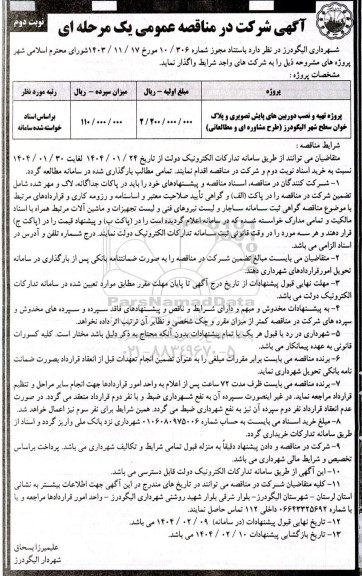 نوبت دوم
آگهی شرکت در مناقصه عمومی یک مرحله ای
شهرداری الیگودرز در نظر دارد باستناد مجوز شماره ۱۰/۳۰۶ مورخ ۱۴۰۳/۱۱/۱۷ شورای محترم اسلامی شهر
پروژه های مشروحه ذیل را به شرکت های واجد شرایط واگذار نماید.
مشخصات پروژه :
پروژه
مبلغ اولیه – ریال
میزان سپرده – ریال
رتبه مورد نظر
پروژه تهیه و نصب دوربین های پایش تصویری و پلاک
خوان سطح شهر الیگودرز (طرح مشاوره ای و مطالعاتی)
۲/۲۰۰/۰۰۰/۰۰۰
۱۱۰/۰۰۰/۰۰۰
براساس اسناد
خواسته شده سامانه
شرایط مناقصه :
متقاضیان می توانند از طریق سامانه تدارکات الکترونیک دولت از تاریخ ۱۴۰۴/۰۱/۲۴ لغایت ۱۴۰۴/۰۱/۳۰
نسبت به خرید اسناد نوبت دوم و شرکت در مناقصه اقدام نمایند. تمامی مطالب بارگذاری شده در سامانه مطالعه گردد.
۱- شرکت کنندگان در مناقصه، اسناد مناقصه و پیشنهادهای خود را باید در پاکات جداگانه، لاک و مهر شده شامل
تضمین شرکت در مناقصه را در پاکت (الف) و گواهی تأیید صلاحیت معتبر و اساسنامه و رزومه کاری و قراردادهای مرتبط
با موضوع مناقصه گواهی ثبت سامانه ساجار و لیست نیروهای فنی و لیست تجهیزات و ماشین آلات مرتبط همراه با اسناد
مالکیت و تمامی مدارک خواسته شده که در سامانه اعلام گردیده است را در (پاکت ب) و پیشنهاد قیمت را در (پاکت ج)
قرار دهند و هر سه مورد را در وقت قانونی ثبت سامانه تدارکات الکترونیک دولت نمایند. درج شماره تلفن و آدرس در
اسناد الزامی می باشد.
۲- متقاضیان می بایست مبالغ تضمین شرکت در مناقصه را به صورت ضمانتنامه بانکی پس از بارگذاری در سامانه
تحویل امور قراردادهای شهرداری دهند.
۳- مهلت نهایی قبول پیشنهادات از تاریخ درج آگهی تا پایان مهلت مقرر مطابق موارد تعیین شده در سامانه تدارکات
الکترونیک دولت می باشد.
۴- به پیشنهادات مخدوش و مبهم و دارای شرایط و ناقص و پیشنهادهای فاقد سپرده و سپرده های مخدوش و
سپرده های شرکت در مناقصه کمتر از میزان مقرر و چک شخصی و نظایر آن ترتیب اثر داده نخواهد.
۵- شهرداری در رد یا قبول هر یک یا تمام پیشنهادات بدون آنکه محتاج به ذکر دلیل باشد مختار است. کلیه کسورات
قانونی به عهده پیمانکار می باشد.
۶- برنده مناقصه می بایست برابر مقررات مبلغی را به عنوان تضمین انجام تعهدات قبل از انعقاد قرارداد بصورت ضمانت
نامه بانکی تحویل شهرداری نماید.
۷- برنده مناقصه می بایست ظرف مدت ۷۲ ساعت پس از اعلام به واحد امور قراردادها جهت انجام سایر مراحل و تنظیم
قرارداد مراجعه نماید. در غیر اینصورت سپرده آن به نفع شهرداری ضبط و با نفر دوم قرارداد منعقد می گردد. در صورت
عدم انعقاد قرارداد نفر دوم سپرده آن نیز به نفع شهرداری ضبط می گردد. همین شرایط برای نفر سوم نیز اعمال خواهد شد.
۸- مبلغ خرید اسناد می بایست به حساب شماره ۰۱۰۶۰۸۰۹۷۵۰۰۶ شهرداری نزد بانک ملی واریز گردد و اسناد از
طریق سامانه تدارکات خریداری گردد.
۹- شرکت در مناقصه و دادن پیشنهاد دقیقاً به منزله قبول تمامی شرایط و تکالیف شهرداری می باشد. پرداخت براساس
تخصیص و شرایط مالی شهرداری می باشد.
۱۰- این آگهی از طریق سامانه تدارکات الکترونیک دولت قابل دسترسی می باشد.
۱۱- کلیه متقاضیان شرکت در مناقصه می توانند در تاریخ های مندرج در این آگهی جهت اطلاعات بیشتر به نشانی
استان لرستان – شهرستان الیگودرز– بلوار شرقی بلوار شهید روشنی شهرداری الیگودرز – واحد امور قراردادها مراجعه و یا
با شماره ۰۶۶۴۳۳۲۵۶۹۲ داخلی ۱۱۲ تماس حاصل نمایند.
۱۲- تاریخ نهایی قبول پیشنهادات (در سامانه) ۱۴۰۴/۰۲/۰۹ می باشد.
۱۳- تاریخ بازگشایی پیشنهادات ۱۴۰۴/۰۲/۱۰ می باشد.
علیمیرزا یسحاق
شهردار الیگودرز